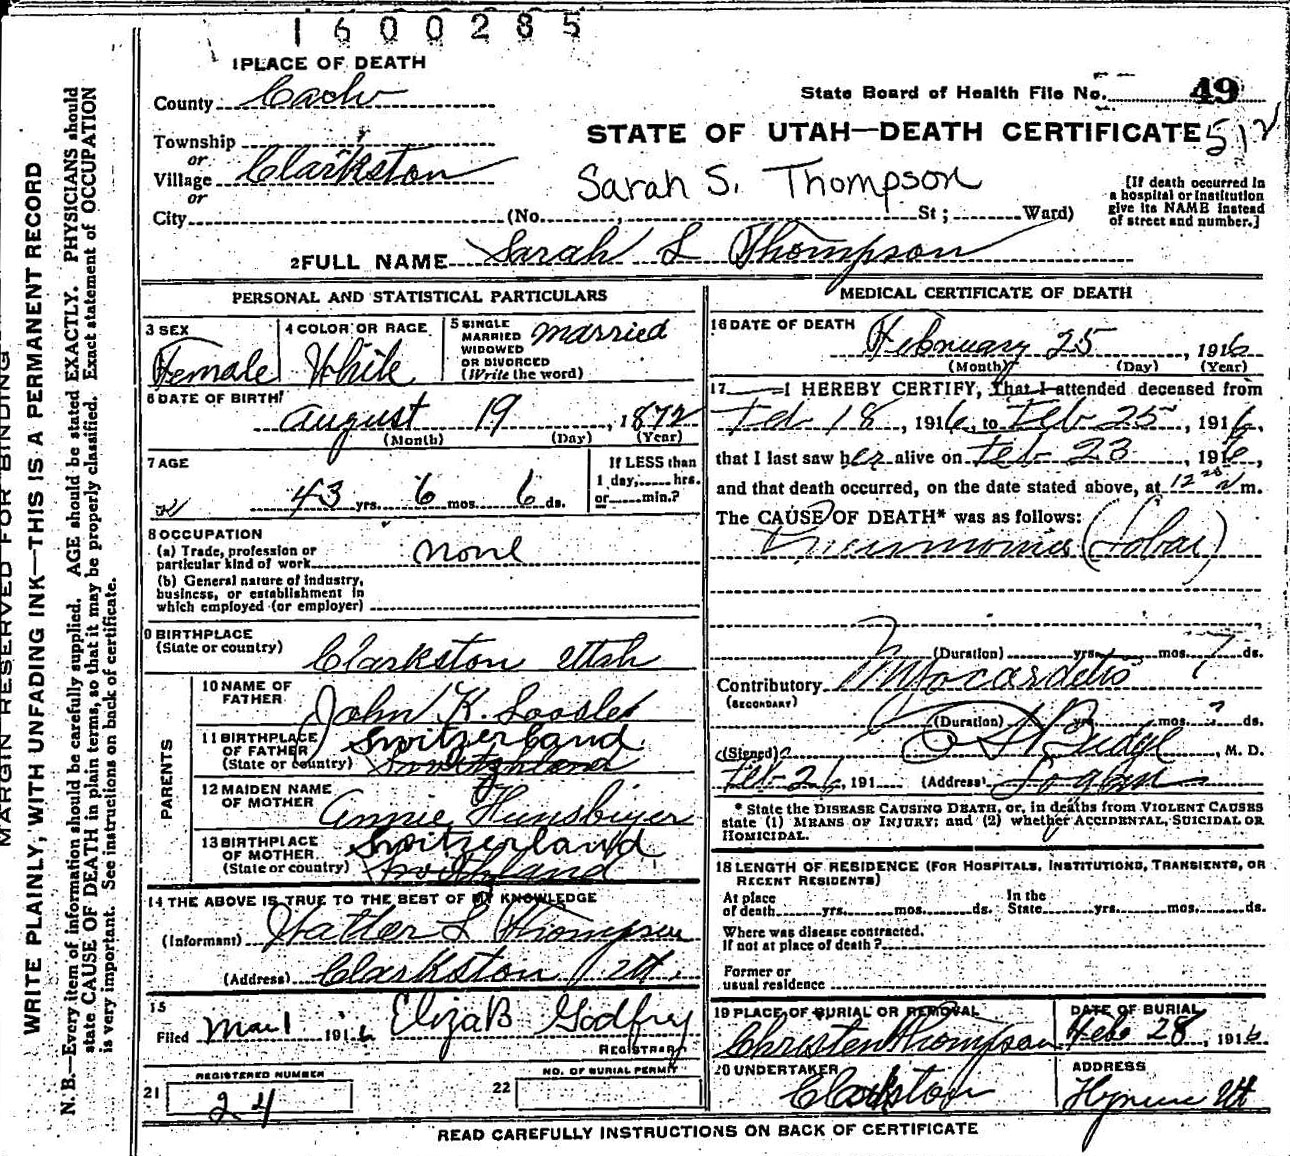 1600285
1 PLACE OF DEATH
County Cache
State Board of Health File No. 49
Township
or
Village Clarkston
or
STATE OF UTAH—DEATH CERTIFICATE 512
Sarah S. Thompson
[If death occurred in
a hospital or institution
give its NAME instead
of street and number.]
City (No. , St ; Ward)
2 FULL NAME Sarah S Thompson
PERSONAL AND STATISTICAL PARTICULARS
3 SEX
Female
4 COLOR OR RACE
White
5 SINGLE
MARRIED
WIDOWED
OR DIVORCED
(Write the word)
married
6 DATE OF BIRTH
August 19, 1872
(Month) (Day) (Year)
7 AGE
43 yrs. 6 mos. 6 ds.
If LESS than
1 day, hrs.
or min.?
8 OCCUPATION
(a) Trade, profession or
particular kind of work none
(b) General nature of industry,
business, or establishment in
which employed (or employer)
9 BIRTHPLACE
(State or country)
Clarkston Utah
PARENTS
10 NAME OF
FATHER
John K. Loosle
11 BIRTHPLACE
OF FATHER
(State or country)
Switzerland
Switzerland
12 MAIDEN NAME
OF MOTHER
Annie
13 BIRTHPLACE
OF MOTHER
(State or country)
Switzerland
14 THE ABOVE IS TRUE TO THE BEST OF MY KNOWLEDGE
(Informant) L Thompson
(Address) Clarkston Ut.
15
Filed Mar 1 1916 Eliza B Godfrey
REGISTRAR
21 REGISTERED NUMBER
24
22 NO. OF BURIAL PERMIT
MEDICAL CERTIFICATE OF DEATH
16 DATE OF DEATH
February 25, 1916
(Month) (Day) (Year)
17 I HEREBY CERTIFY, That I attended deceased from
Feb 18, 1916, to Feb 25, 1916,
that I last saw her alive on Feb 23, 1916,
and that death occurred, on the date stated above, at 12 m.
The CAUSE OF DEATH* was as follows:
Pneumonia (Lobar)
(Duration) yrs. mos. 7 ds.
Contributory Myocardetis
(SECONDARY)
(Duration) yrs. mos. ? ds.
(Signed) Budge, M. D.
Feb 26, 191 (Address) Logan
* State the DISEASE CAUSING DEATH, or, in deaths from VIOLENT CAUSES
state (1) MEANS OF INJURY; and (2) whether ACCIDENTAL, SUICIDAL OR
HOMICIDAL.
18 LENGTH OF RESIDENCE (FOR HOSPITALS, INSTITUTIONS, TRANSIENTS, OR
RECENT RESIDENTS)
At place
of death yrs. mos. ds.
In the
State yrs. mos. ds.
Where was disease contracted.
If not at place of death?
Former or
usual residence
19 PLACE OF BURIAL OR REMOVAL
Christen Thompson
DATE OF BURIAL
Feb 28, 1916
20 UNDERTAKER
Clarkston
ADDRESS
Ut
READ CAREFULLY INSTRUCTIONS ON BACK OF CERTIFICATE
MARGIN RESERVED FOR BINDING
WRITE PLAINLY, WITH UNFADING INK—THIS IS A PERMANENT RECORD
N. B.—Every item of information should be carefully supplied. AGE should be stated EXACTLY. PHYSICIANS should
state CAUSE OF DEATH in plain terms, so that it may be properly classified. Exact statement of OCCUPATION
is very important. See instructions on back of certificate.